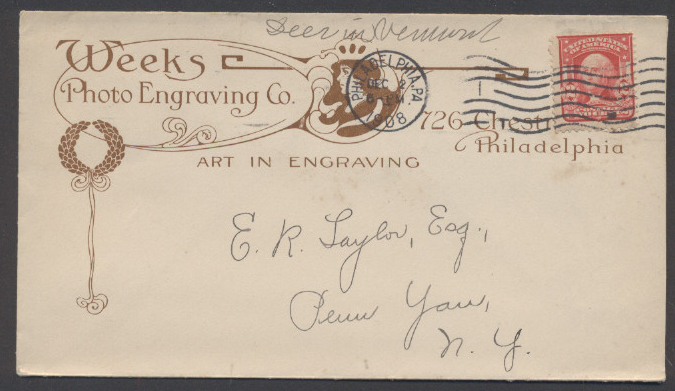 Deer in Vermont
Weeks
Photo Engraving Co.
PHILADELPHIA, PA.
DEC 2
6 PM
1908
UNITED STATES
OF AMERICA
726 Chest
Philadelphia
ART IN ENGRAVING
E. R. Taylor, Esq.,
Penn Yan,
N. Y.